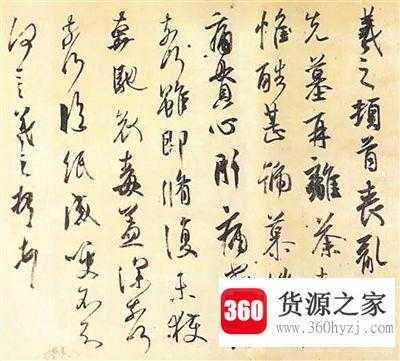 羲之頓首喪亂
先墓再離荼
惟酷甚號慕摧
痛貫心肝痛
奈何雖即脩復未獲
奔馳哀毒益深奈何
奈何臨紙感哽不知
何言羲之頓首
360 货源之家
www.360hyzj.com